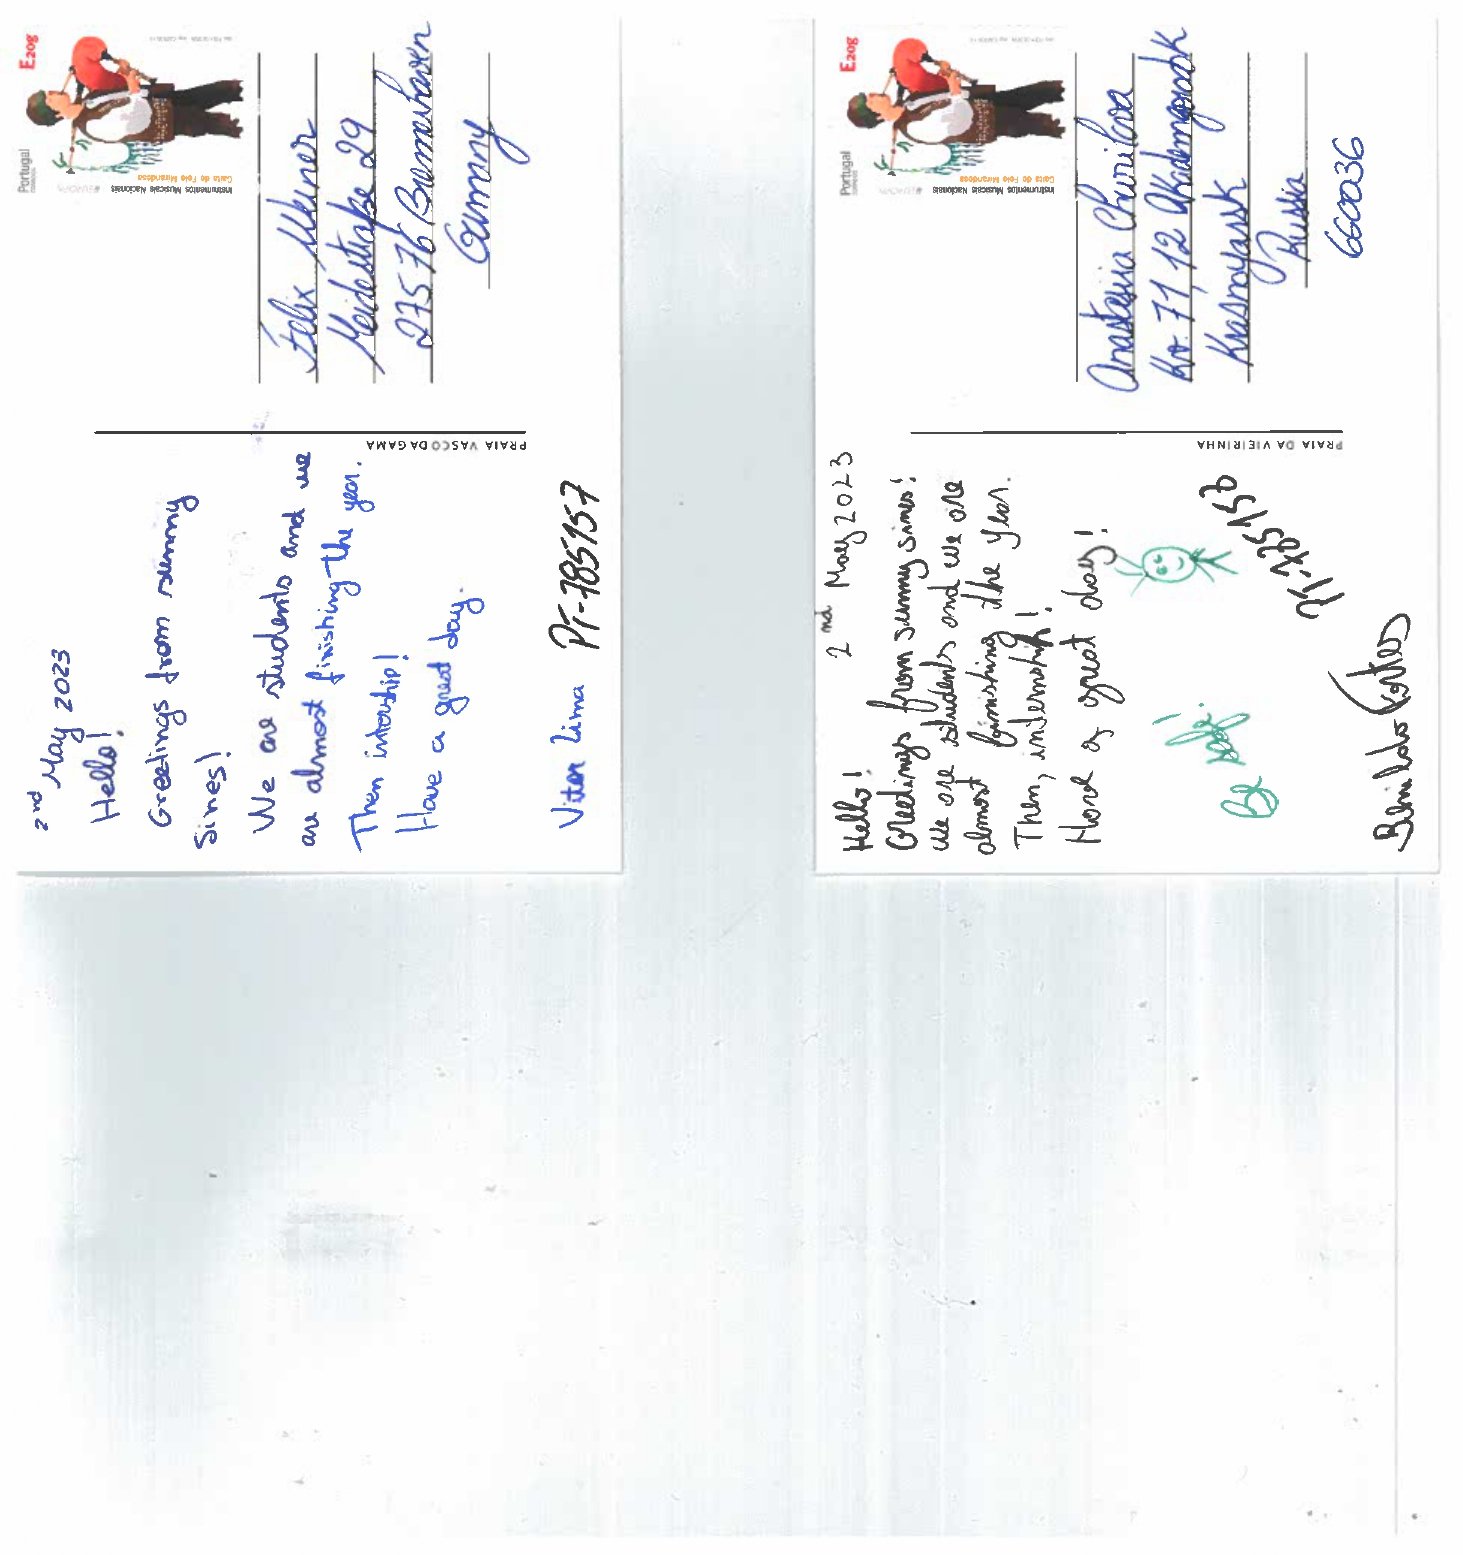 2nd May 2023
Hello!
Greetings from sunny
Sines!
We are students and we
are almost finishing the year.
Then intership!
Have a great day.
Vitor Lima
PT-785157
PRAIA VASCO DA GAMA
Portugal
E20g
Instrumentos Musicais Nacionais
Gaita de Fole Mirandesa
Felix
27576 Bremerhaven
Germany
2nd May 2023
Hello!
Greetings from sunny sines!
We are students and we are
almost finishing the Year.
Then, internship!
Have a great day!
Be
PRAIA DA VIEIRINHA
Portugal
E20g
Instrumentos Musicais Nacionais
Gaita de Fole Mirandesa
Anastasiia Churilova
Kv. 71, 12 Akademgorodok
Krasnoyarsk
Russia
660036